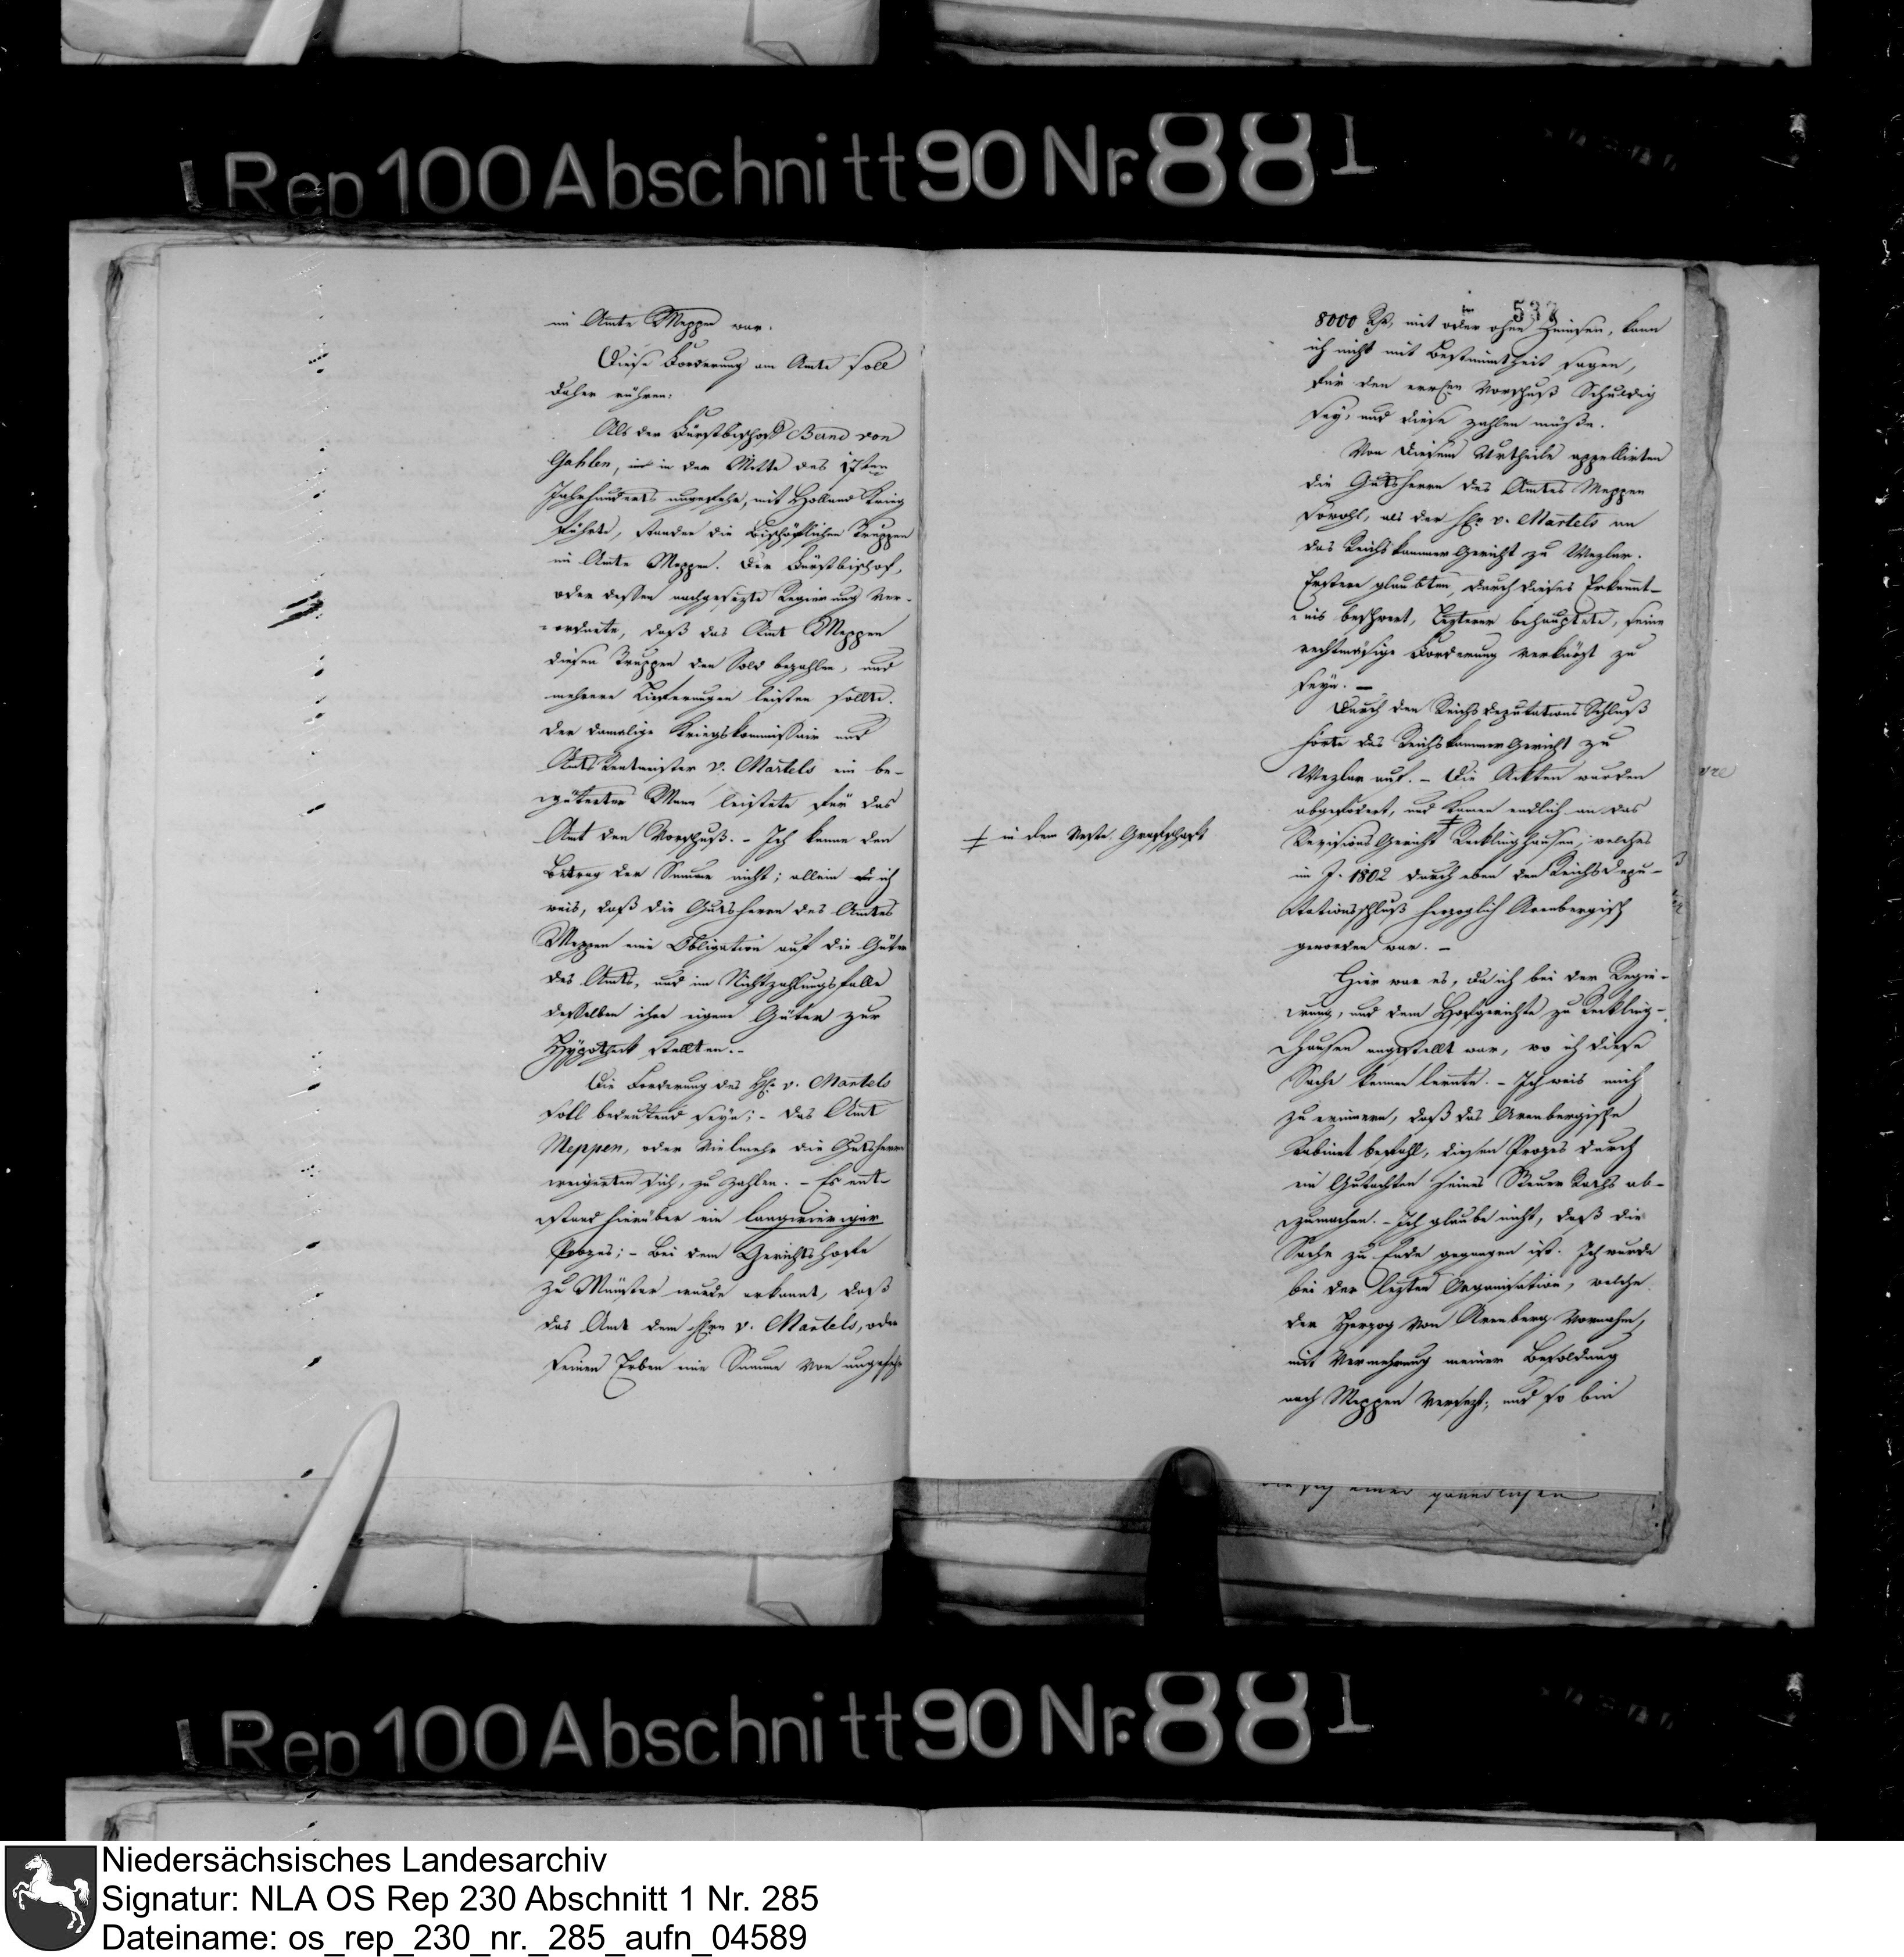 Rep 100 Abschnitt 90 Nr. 881
im Amte Meppen war.
Diese Forderung am Amte soll
daher rühren:
Als der Fürstbischof Bernd von
Gahlen, in der Mitte des 17ten
Jahrhunderts ungefehr, mit Holland Krieg
führte, standen die Bischöflichen Truppen
im Amte Meppen. Der Fürstbischof,
oder dessen nachgesezte Regierung ver-
ordnete, daß das Amt Meppen
diesen Truppen den Sold bezahlen, und
mehrere Lieferungen leisten sollte.
Der damalige Kriegskommissair und
Amts Rentmeister v. Martels ein be-
güterter Mann leistete für das
Amt den Vorschuß. - Ich kenne den
Betrag der Summe nicht; allein ich
weis, daß die Gutsherren des Amtes
Meppen eine Obligation auf die Güter
des Amts, und im Nichtzahlungsfalle
desselben ihre eigene Güter zur
Hypotheck stellten. -
Die Forderung des H. v. Martels
soll bedeutend seyn; - das Amt
Meppen, oder vielmehr die Gutsherrn
weigerten sich, zu zahlen. - Es ent-
stand hierüber ein langwieriger
Prozes; - Bei dem Gerichtshofe
zu Münster wurde erkannt, daß
das Amt dem Hrn v. Martels, oder
seinen Erben eine Summe von ungefehr
532
8000 Rth, mit oder ohne Zinsen, kann
ich nicht mit Bestimmtheit sagen,
für den Vorschuß schuldig
sey, und diese zahlen müße.
Von diesem Urtheile appellirten
die Gutsherrn des Amtes Meppen
sowohl, als der Hr v. Martels an
das Reichskammer Gericht zu Wezlar.
Erstere glaubten, durch dieses Erkennt-
nis beschwert, lezterer behauptete, seine
rechtmäsige Forderung verkürzt zu
seyn. -
Durch den Reichsdeputations Schluß
hörte das Reichskammer Gericht zu
Wezlar auf. - Die Ackten wurden
abgefodert, und kamen endlich an das
‡ in der Veste. Grafschaft
Revisions Gericht ‡ Recklinghausen, welches
im J. 1802 durch eben den Reichsdepu-
tationsschluß herzoglich Arenbergisch
geworden war. -
Hier war es, da ich bei der Regie-
rung, und dem Hofgerichte zu Reckling-
hausen angestellt war, wo ich diese
Sache kennen lernte. - Ich weis mich
zu erinnern, daß das Arenbergische
Kabinet befahl, diesen Prozes durch
ein Gutachten seines Steuer Raths ab-
zumachen. - Ich glaube nicht, daß die
Sache zu Ende gegangen ist. Ich wurde
bei der lezten Organisation, welche
der Herzog von Arenberg vornahm,
mit Vermehrung meiner Besoldung
nach Meppen versezt; und so bin
Rep 100 Abschnitt 90 Nr. 881
Niedersächsisches Landesarchiv
Signatur: NLA OS Rep 230 Abschnitt 1 Nr. 285
Dateiname: os_rep_230_nr._285_aufn_04589